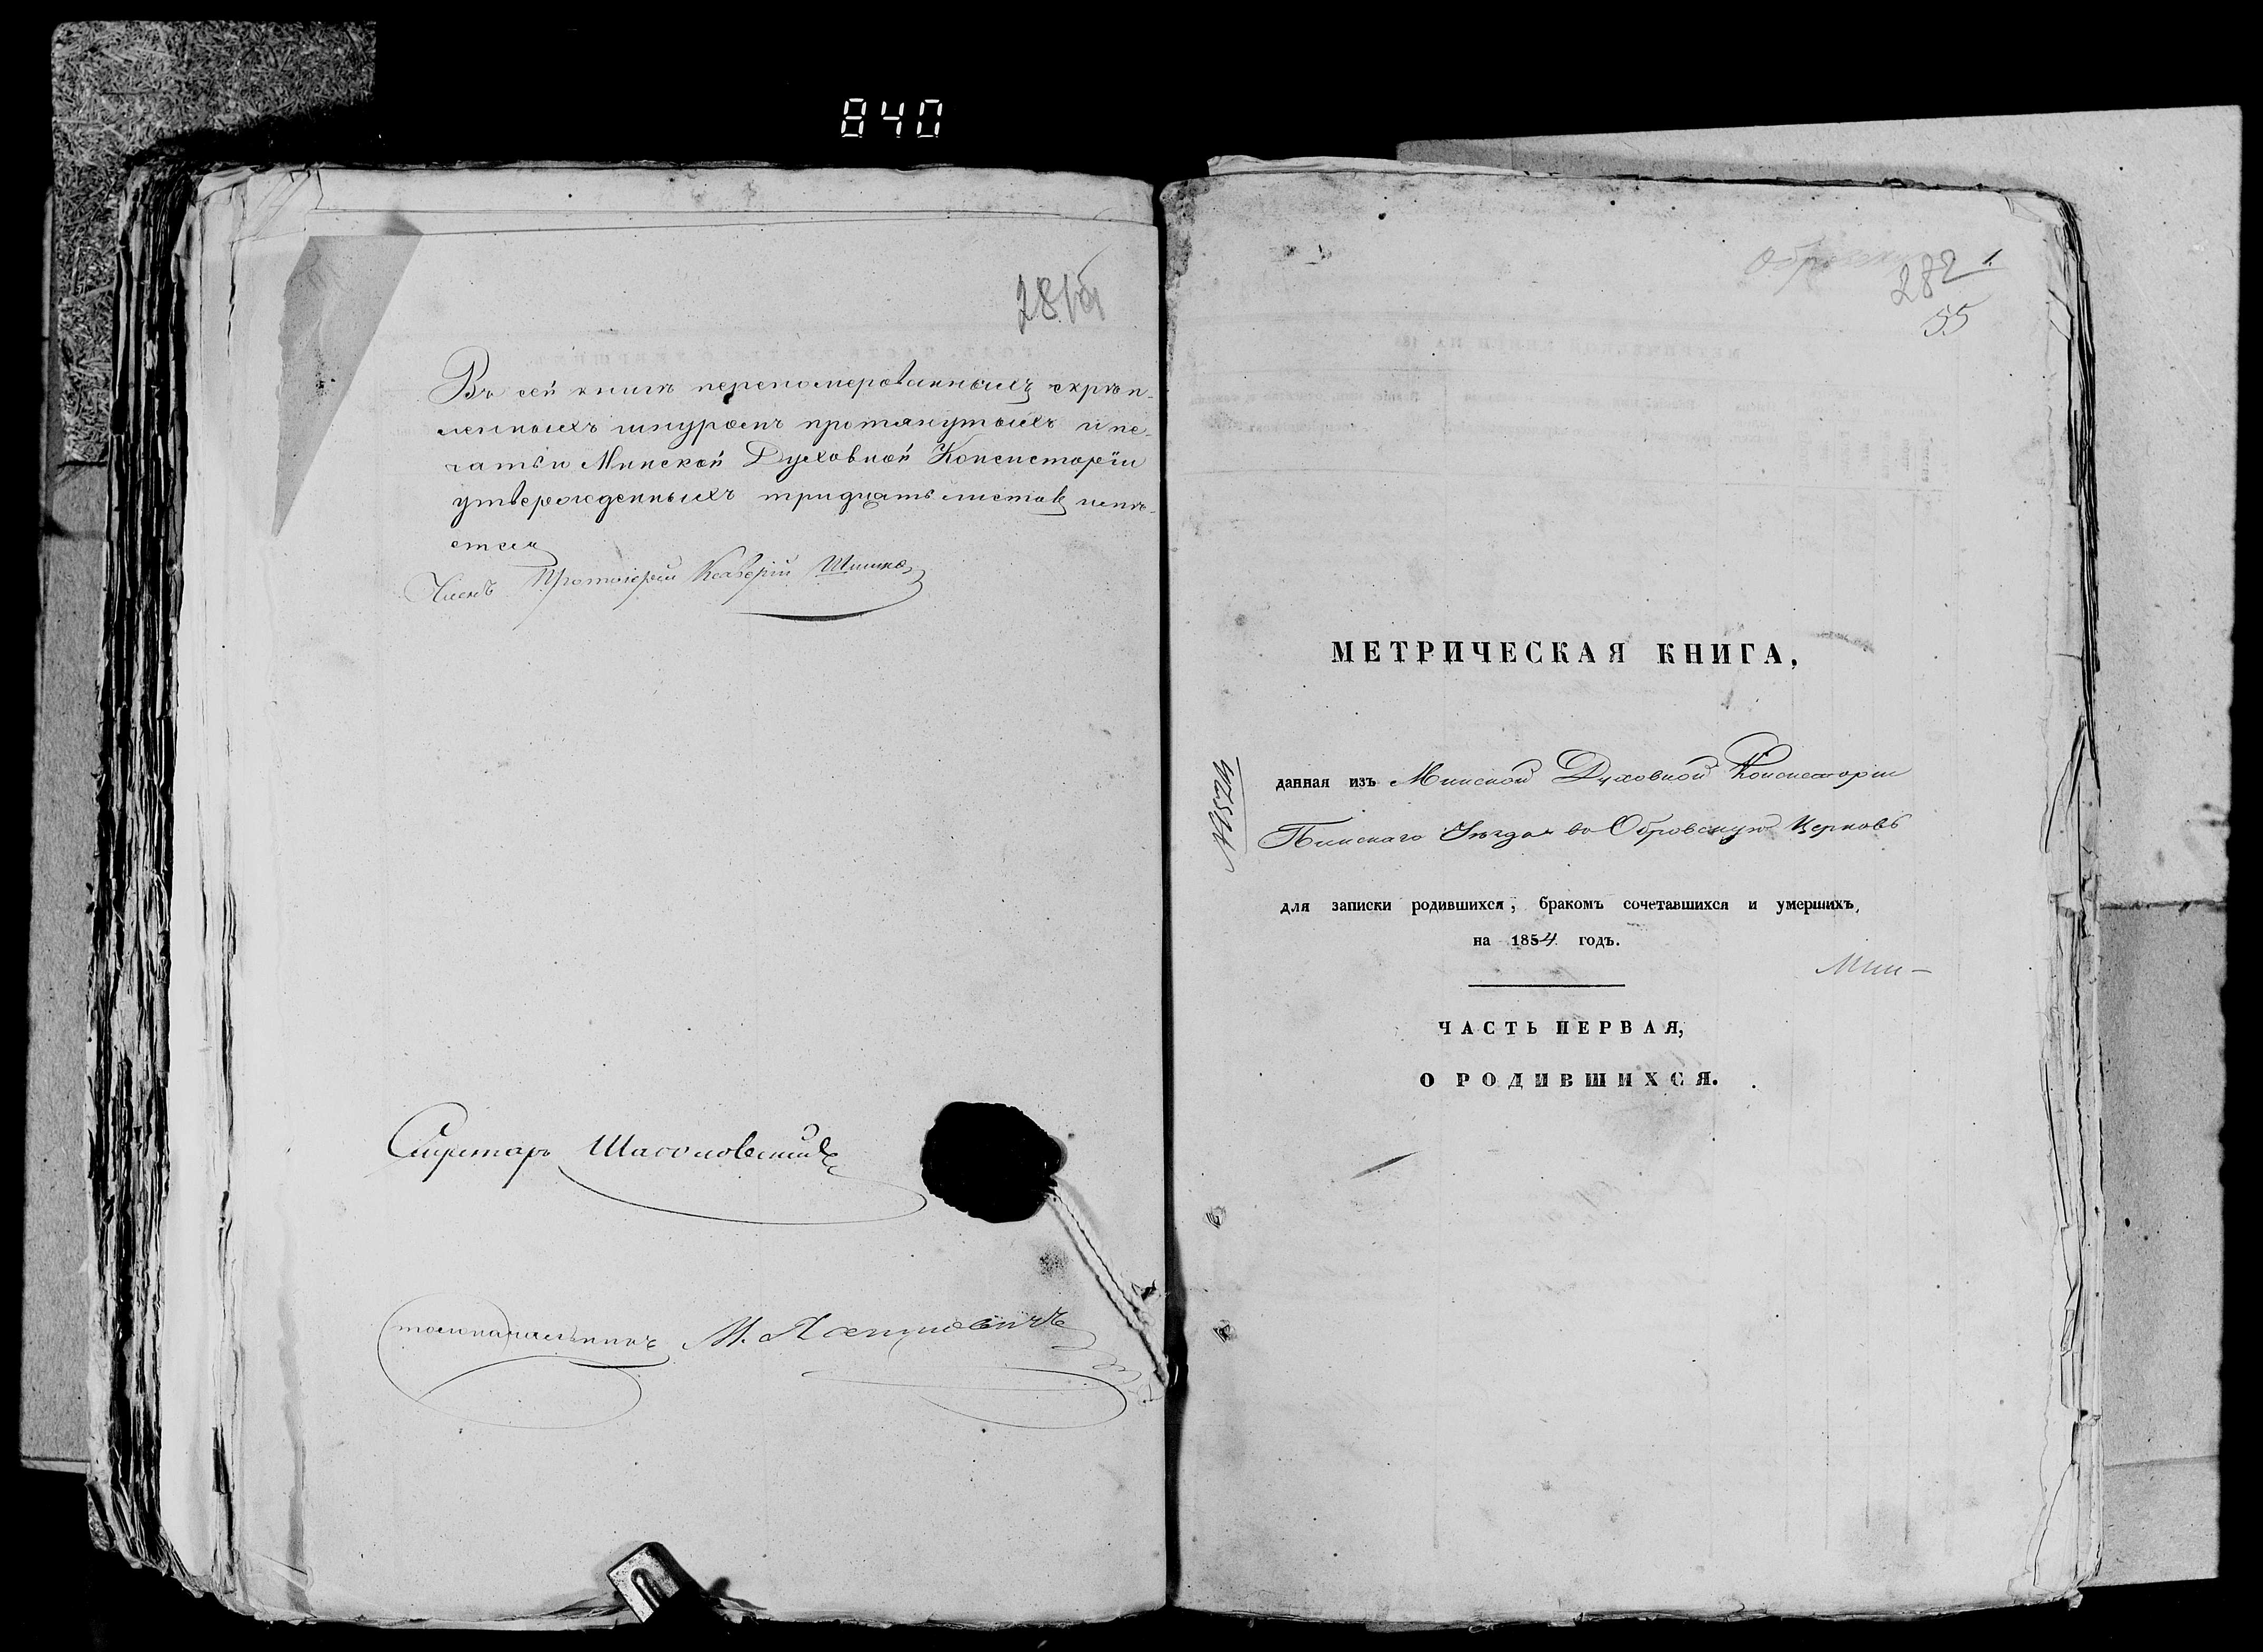 840
Въ сей книгѣ перепомерованныхъ скрѣп-
ленныхъ шнуромъ протянутыхъ и пе-
чатью Минской Духовной Консисторіи
утвержденныхъ тридцать листовъ имѣ-
ется
Членъ Протоіерей Ксаверій Шишко
Секретарь
Столоначальникъ М.
282 1.
55
МЕТРИЧЕСКАЯ КНИГА,
данная изъ Минской Духовной Консисторіи
Пинскаго Уѣзда во Обровскую Церковь
для записки родившихся, бракомъ сочетавшихся и умершихъ,
на 1854 годъ.
Мин-
ЧАСТЬ ПЕРВАЯ,
О РОДИВШИХСЯ.